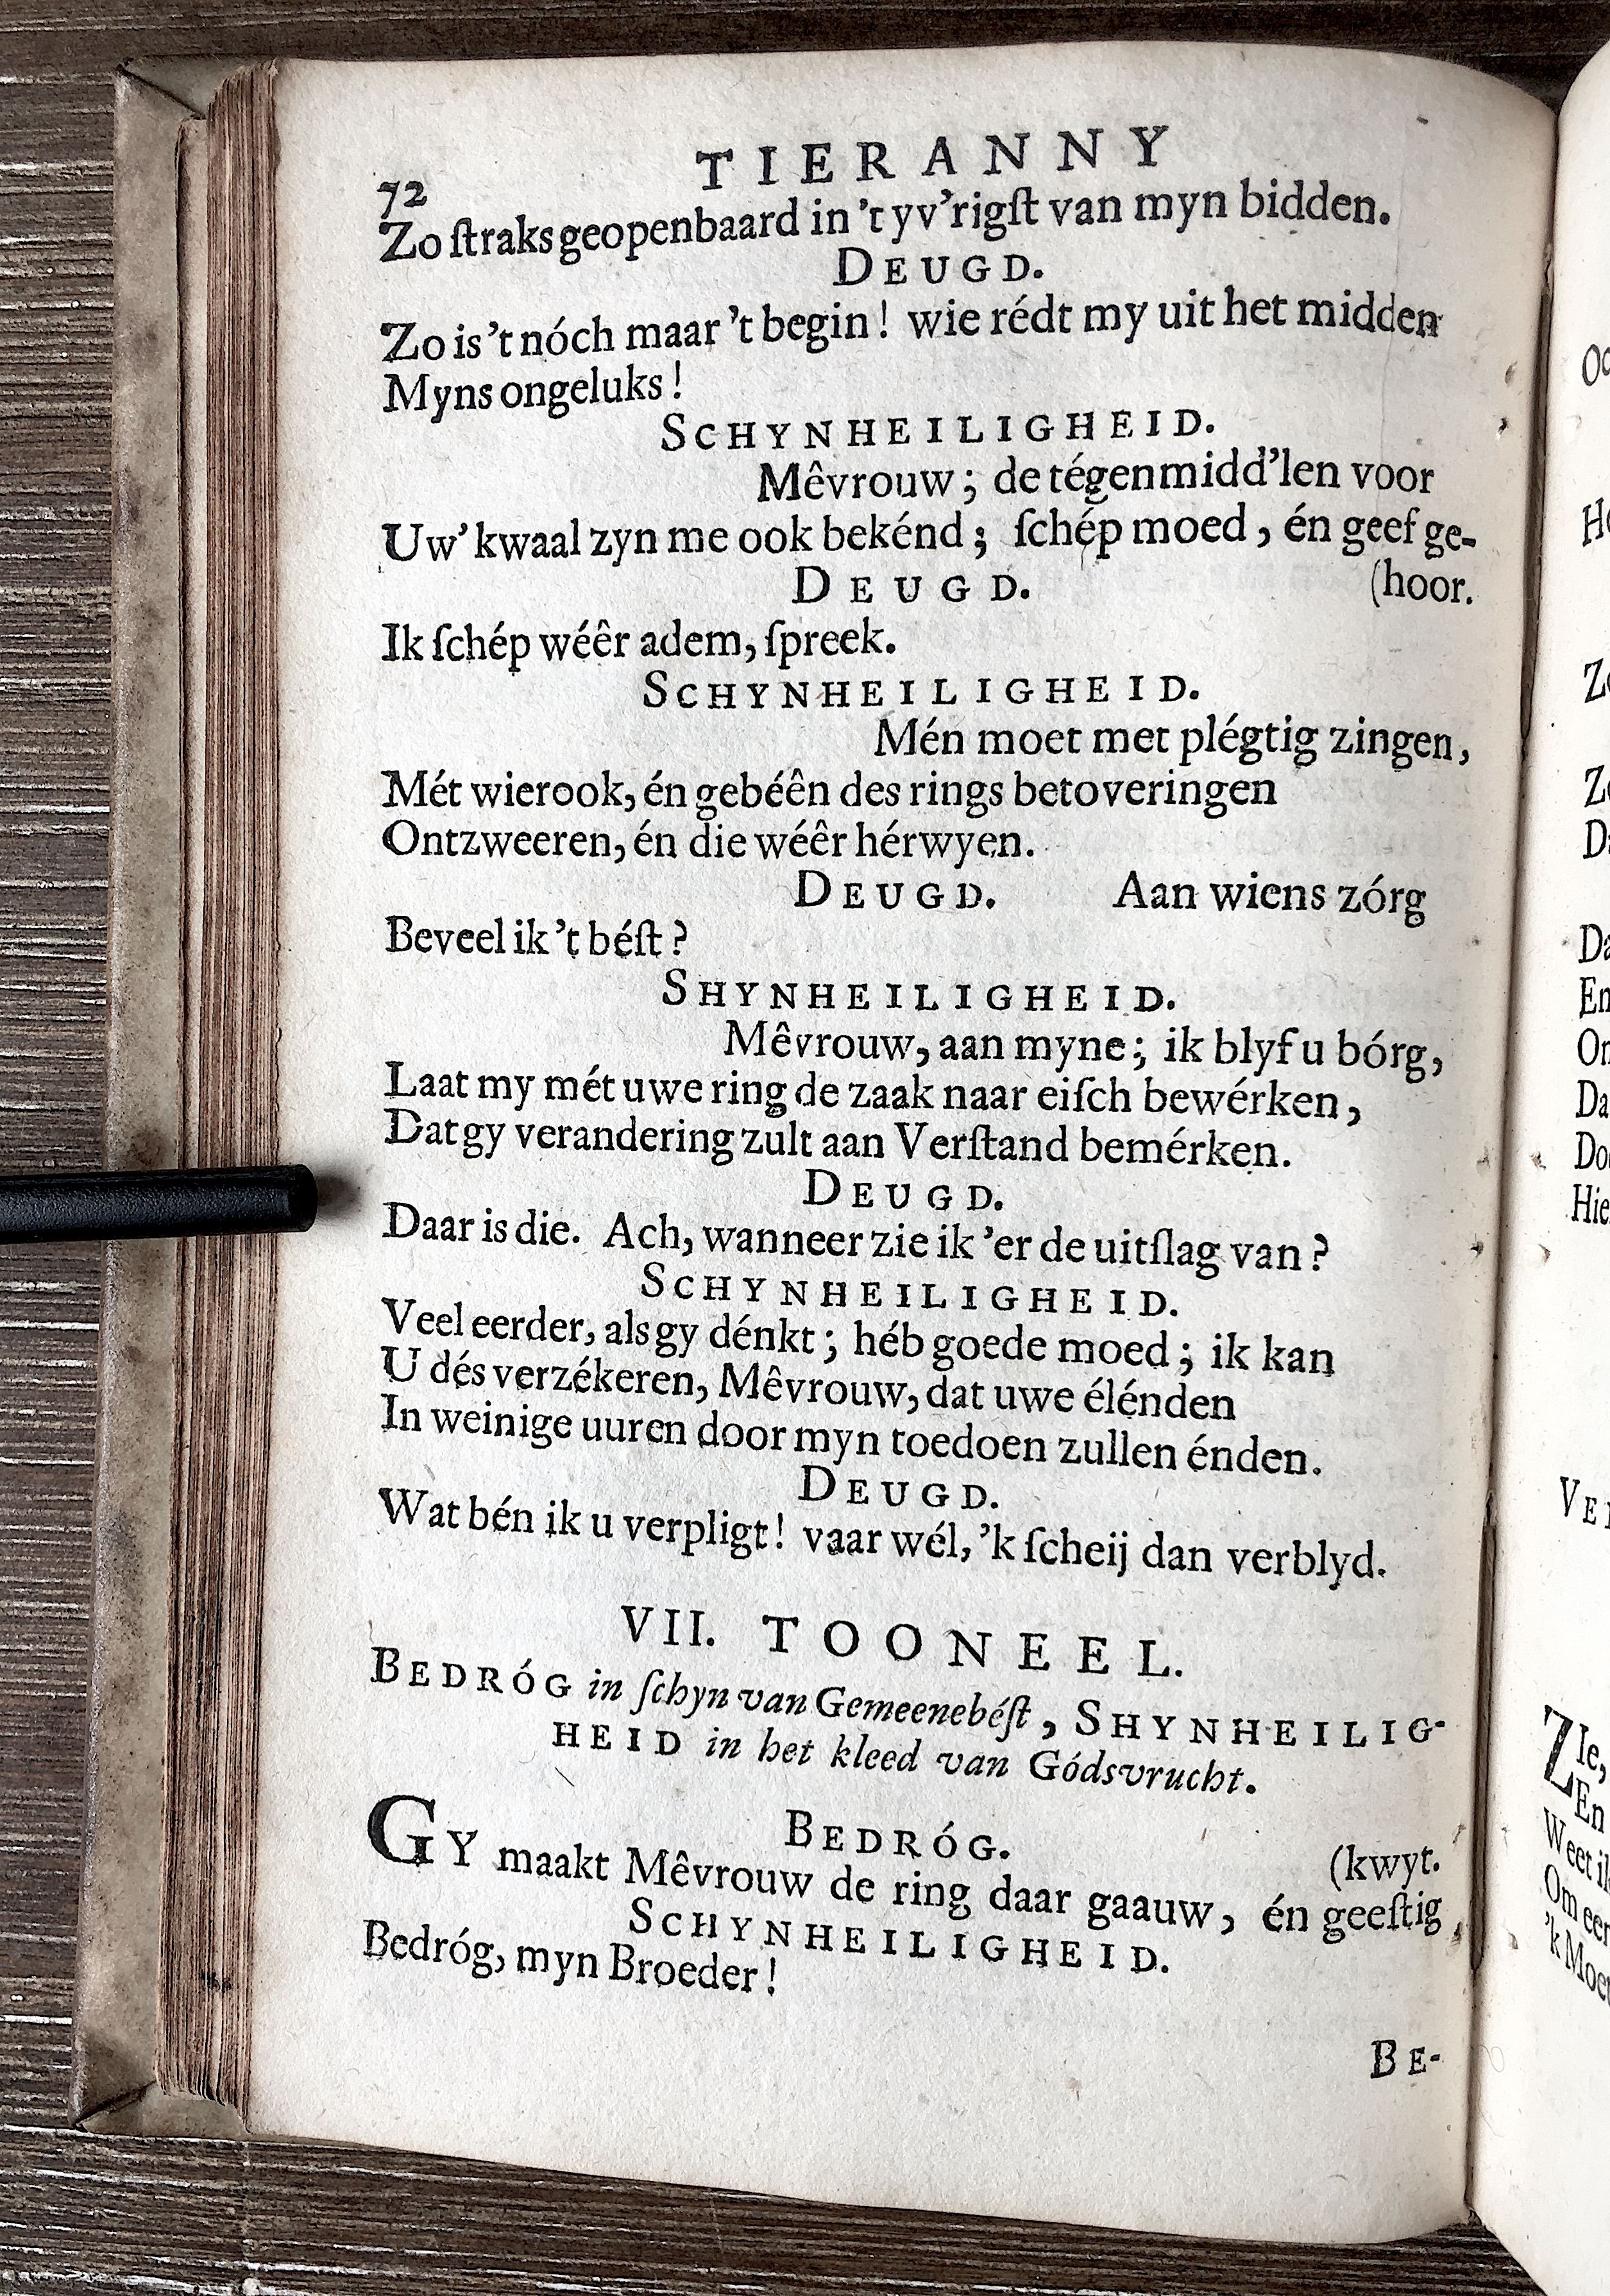 72
TIERANNY
Zo ſtraks geopenbaard in 't yv'rigſt van myn bidden.
DEUGD.
Zo is 't nóch maar 't begin! wie rédt my uit het midden
Myns ongeluks!
SCHYNHEILIGHEID.
Mêvrouw; de tégenmidd'len voor
Uw' kwaal zyn me ook bekénd; ſchép moed, én geef ge-
(hoor.
DEUGD.
Ik ſchép wéêr adem, ſpreek.
SCHYNHEILIGHEID.
Mén moet met plégtig zingen,
Mét wierook, én gebéên des rings betoveringen
Ontzweeren, én die wéêr hérwyen.
DEUGD. Aan wiens zórg
Beveel ik 't béſt?
SHYNHEILIGHEID.
Mêvrouw, aan myne; ik blyf u bórg,
Laat my mét uwe ring de zaak naar eiſch bewérken,
Dat gy verandering zult aan Verſtand bemérken.
DEUGD.
Daar is die. Ach, wanneer zie ik 'er de uitſlag van?
SCHYNHEILIGHEID.
Veel eerder, als gy dénkt; héb goede moed; ik kan
U dés verzékeren, Mêvrouw, dat uwe élénden
In weinige uuren door myn toedoen zullen énden.
DEUGD.
Wat bén ik u verpligt! vaar wél, 'k ſcheij dan verblyd.
VII. TOONEEL.
BEDRÓG in ſchyn van Gemeenebéſt, SHYNHEILIG-
HEID in het kleed van Gódsvrucht.
BEDRÓG.
(kwyt.
GY maakt Mêvrouw de ring daar gaauw, én geeſtig
SCHYNHEILIGHEID.
Bedróg, myn Broeder!
BE-